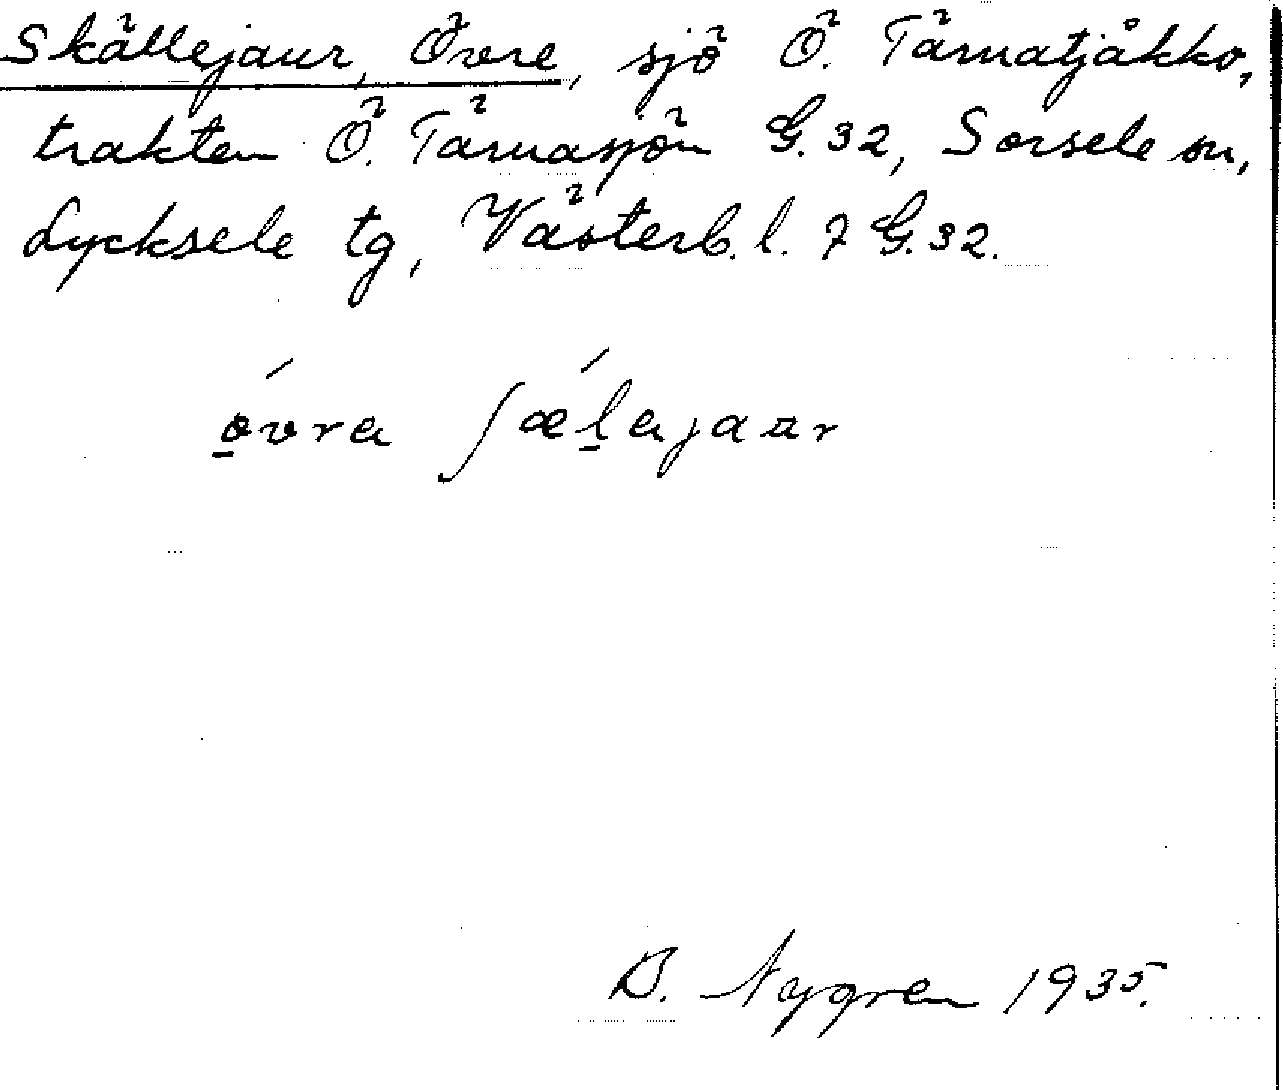 Skällejaur, Övre, sjö Ö. Tärnatjåkko,
trakten Ö. Tärnasjön G.32, Sorsele sn,
Lycksele tg, Västerb. l. 7 G.32.
ó̱vra ʃæ´ḻajaur
B. Nygren 1935.